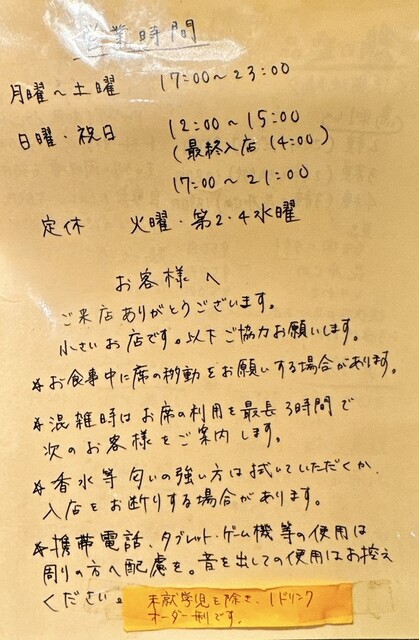 営業時間
月曜～土曜 17:00～23:00
日曜・祝日 12:00～15:00
(最終入店 14:00)
17:00～21:00
定休 火曜・第2.4水曜
お客様へ
ご来店ありがとうございます。
小さいお店です。以下ご協力お願いします。
＊お食事中に席の移動をお願いする場合があります。
＊混雑時はお席の利用を最長3時間で
次のお客様をご案内します。
＊香水等匂いの強い方は拭いていただくか、
入店をお断りする場合があります。
＊携帯電話、タブレット・ゲーム機等の使用は
周りの方へ配慮を。音を出しての使用はお控え
ください。
未就学児を除き、1ドリンク
オーダー制です。